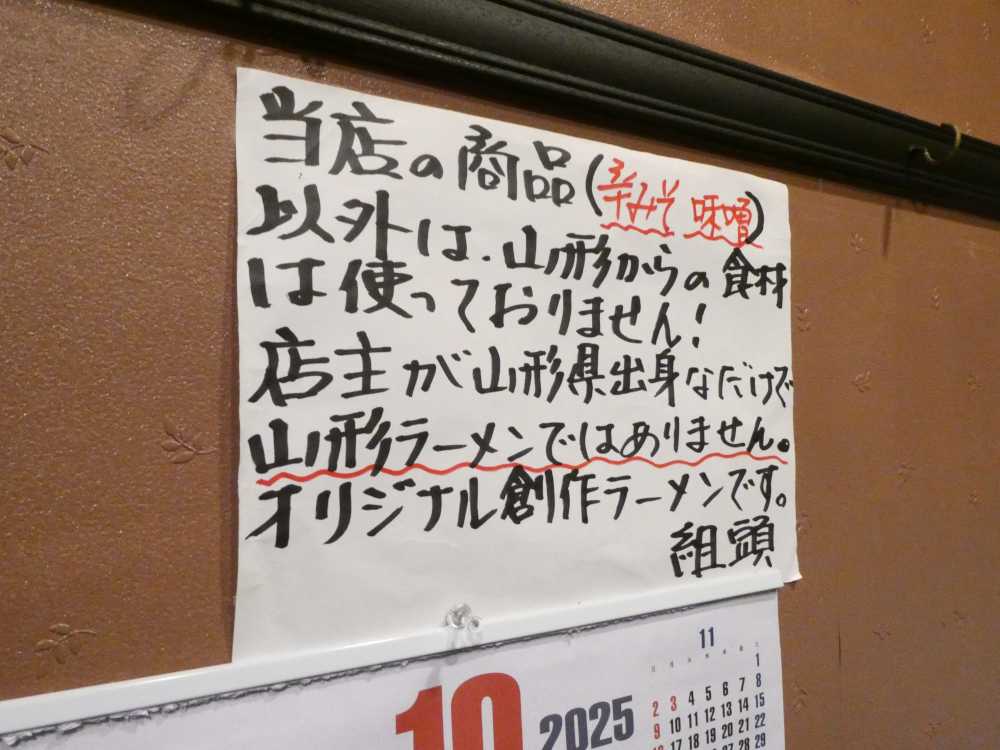 当店の商品(辛みそ 味噌)
以外は、山形からの食材
は使っておりません!
店主が山形県出身なだけで
山形ラーメンではありません。
オリジナル創作ラーメンです。
組頭
10 2025
11
1
2 3 4 5 6 7 8
9 10 11 12 13 14 15
17 18 19 20 21 22
27 28 29